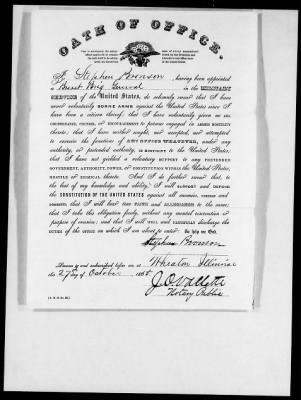 OATH OF OFFICE.
I, Stephen Bronson, having been appointed
a Brevet Brig General in the MILITARY
SERVICE of the United States, do solemnly swear that I have
never voluntarily BORNE ARMS against the United States since I
have been a citizen thereof; that I have voluntarily given no AID,
COUNTENANCE, COUNSEL, or ENCOURAGEMENT to persons engaged in ARMED HOSTILITY
thereto; that I have neither sought, nor accepted, nor attempted
to exercise the functions of ANY OFFICE WHATEVER, under any
authority, or pretended authority, in HOSTILITY to the United States;
that I have not yielded a voluntary SUPPORT to any PRETENDED
GOVERNMENT, AUTHORITY, POWER, or CONSTITUTION within the United States,
HOSTILE or INIMICAL thereto. And I do further swear that, to
the best of my knowledge and ability, I will SUPPORT and DEFEND
the CONSTITUTION OF THE UNITED STATES against all ENEMIES, FOREIGN and
DOMESTIC; that I will bear true FAITH and ALLEGIANCE to the same;
that I take this obligation freely, without any mental reservation or
purpose of evasion; and that I will well and FAITHFULLY discharge the
DUTIES of the OFFICE on which I am about to enter: So help me God.
Stephen Bronson
Sworn to and subscribed before me at Wheaton Illinois
this 27 day of October 1865
J O Vallette
Notary Public